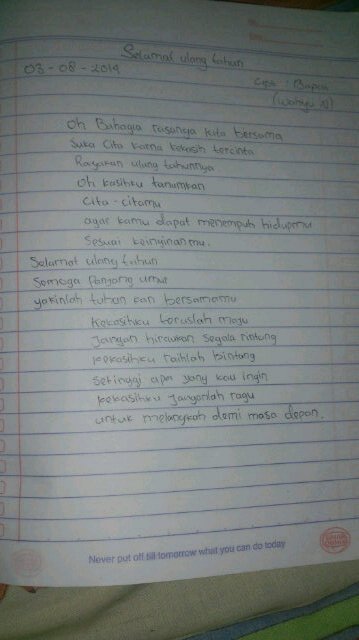 Selamat ulang tahun
03-08-2019
Cipt : Bapak
(Wahyu N)
Oh Bahagia rasanya kita bersama
Suka Cita karna kekasih tercinta
Rayakan ulang tahunnya
Oh kasihku tanamkan
Cita-citamu
agar kamu dapat menempuh hidupmu
Sesuai keinginanmu.
Selamat ulang tahun
Semoga Panjang umur
yakinlah tuhan kan bersamamu
Kekasihku teruslah maju
Jangan hiraukan segala rintang
kekasihku raihlah bintang
Setinggi apa yang kau ingin
kekasihku Janganlah ragu
untuk melangkah demi masa depan.
Never put off till tomorrow what you can do today